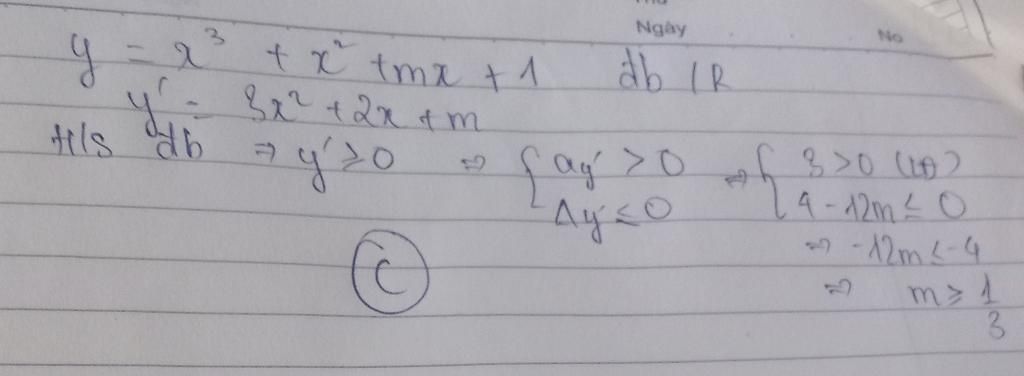 Ngày No
y = x³ + x² + mx + 1 đb /R
y' = 3x² + 2x + m
H/s đb ⇒ y' ≥ 0 ⇒ { ay' > 0 ⇔ { 3 > 0 (LĐ)
Δy' ≤ 0 4 - 12m ≤ 0
⇒ -12m ≤ -4
⇒ m ≥ 1/3
C